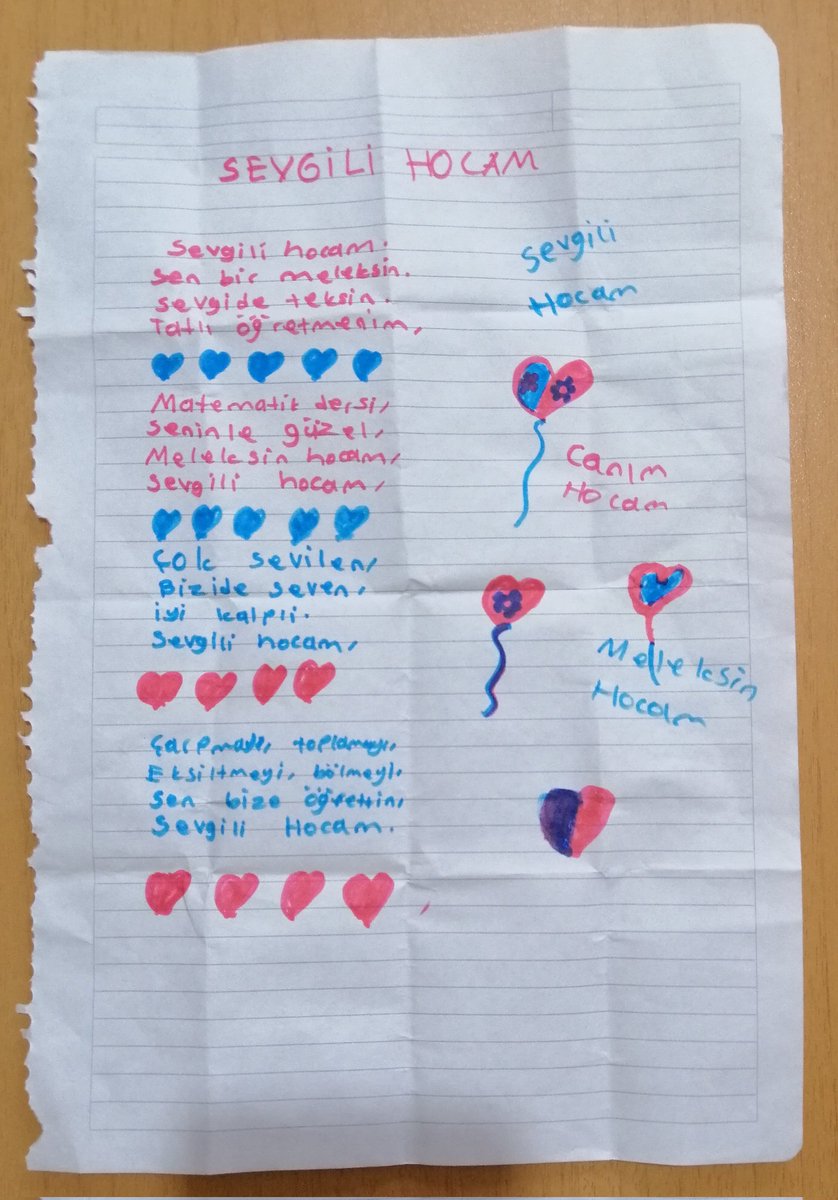 SEVGİLİ HOCAM
Sevgili hocam.
Sen bir meleksin.
Sevgide teksin.
Tatlı öğretmenim,
Matematik dersi,
Seninle güzel,
Meleksin hocam,
Sevgili hocam,
Çok sevilen,
Bizide seven,
İyi kalpli.
Sevgili hocam,
Çarpmayı, toplamayı,
Eksiltmeyi, bölmeyi,
Sen bize öğrettin,
Sevgili Hocam.
Sevgili
Hocam
Canım
Hocam
Meleksin
Hocam